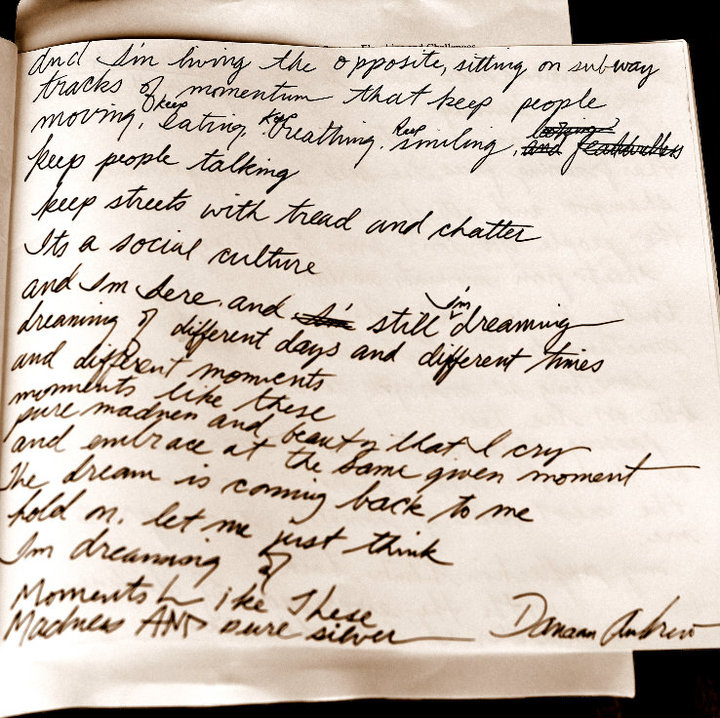 and Challenges
and I'm living the opposite, sitting on subway
tracks of momentum that keep people
moving, keep eating, keep breathing, keep smiling, and
keep people talking
keep streets with tread and chatter
Its a social culture
and I'm here. and I'm still I'm dreaming
dreaming of different days and different times
and different moments
moments like these
pure madness and beauty that I cry
and embrace at the same given moment
The dream is coming back to me
hold on. let me just think
I'm dreaming of
Moments Like These
Madness AND pure silver
Andrew